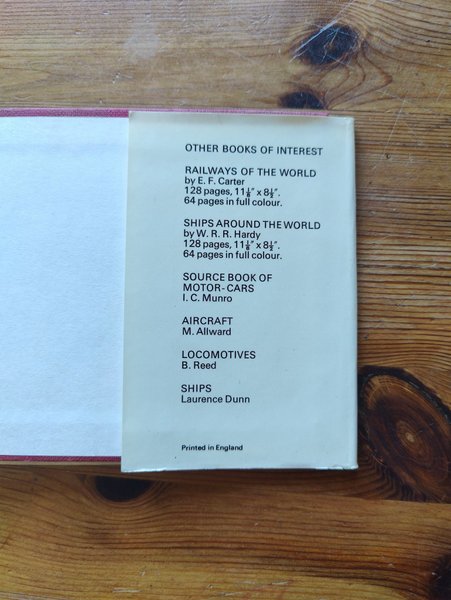 OTHER BOOKS OF INTEREST
RAILWAYS OF THE WORLD
by E. F. Carter
128 pages, 11⅛″ x 8½″.
64 pages in full colour.
SHIPS AROUND THE WORLD
by W. R. R. Hardy
128 pages, 11⅛″ x 8½″.
64 pages in full colour.
SOURCE BOOK OF
MOTOR-CARS
I. C. Munro
AIRCRAFT
M. Allward
LOCOMOTIVES
B. Reed
SHIPS
Laurence Dunn
Printed in England